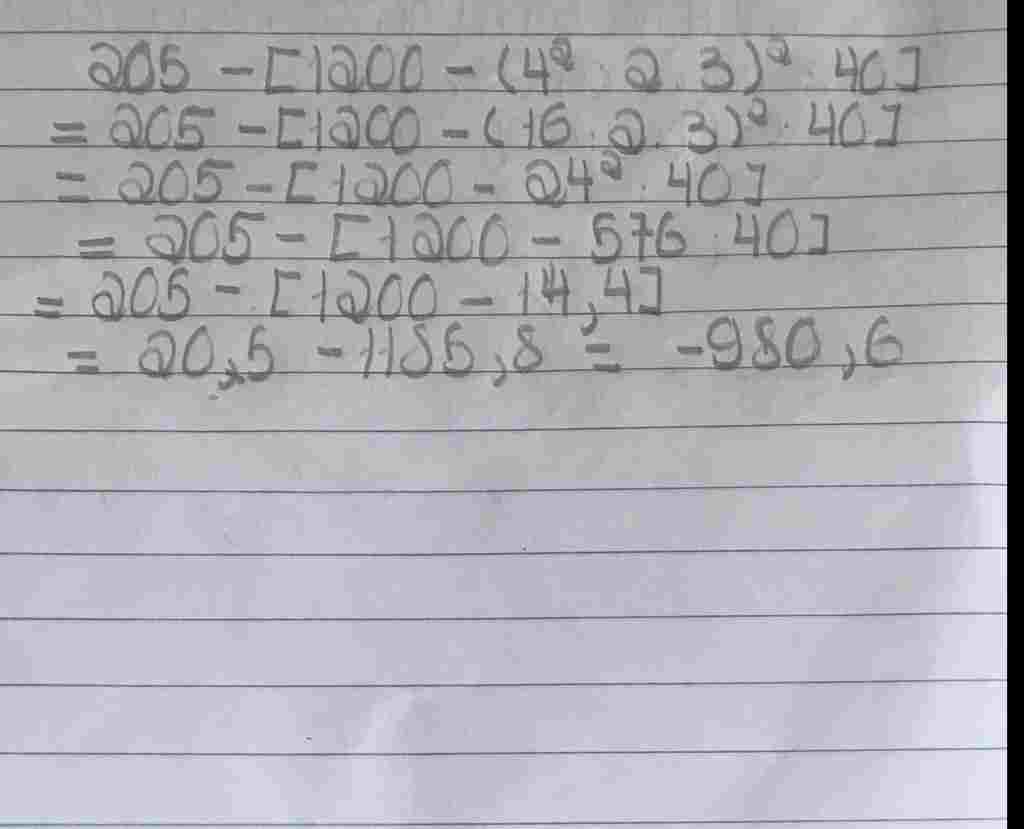 205 - [1200 - (4² : 2 . 3)² : 40]
= 205 - [1200 - (16 : 2 . 3)² : 40]
= 205 - [1200 - 24² : 40]
= 205 - [1200 - 576 : 40]
= 205 - [1200 - 14,4]
= 20,5 - 1185,8 = -980,6